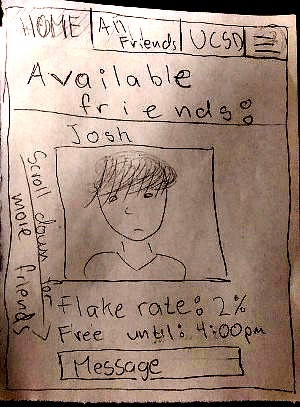 HOME
All Friends
UCSD
Available
friends:
Josh
Scroll down for
more friends
Flake rate: 2%
Free until: 4:00pm
Message